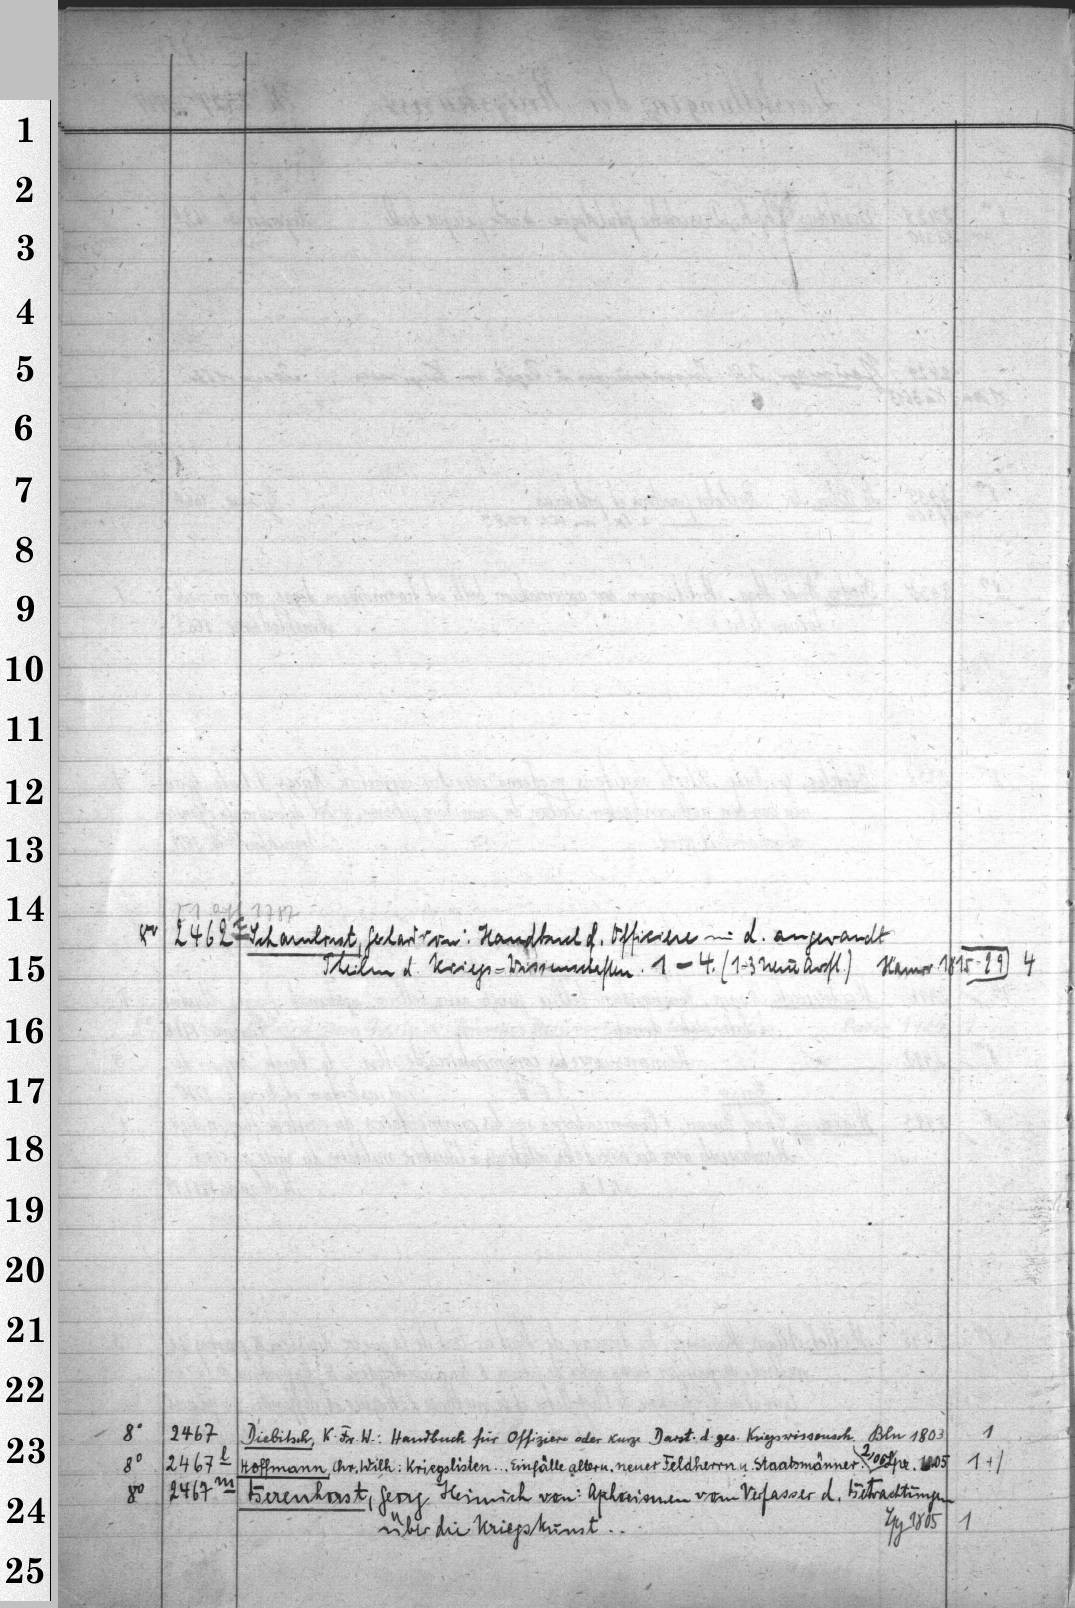 1
2
3
4
5
6
7
8
9
10
11
12
13
14
8° 2462 Scharnhorst, Gerhard von: Handbuch f. Officiere in d. angewandt
15
Theilen d. Kriegs-Wissenschaften. 1-4. (1-3 Neue Aufl.) Hannov 1815-29 4
16
17
18
19
20
21
22
8° 2467 Diebitsch, K. Fr. W.: Handbuch für Offiziere oder kurze Darst. d. ges. Kriegswissensch. Bln 1803 1
23
8° 2467 l Hoffmann, Chr. Wilh: Kriegslisten... Einfälle ältern. neuer Feldherrn u. Staatsmänner. Lpz. 1805 1
8° 2467 m Berenhorst, Georg Heinrich von: Aphorismen vom Verfasser d. Betrachtungen
24
über die Kriegskunst.. Lpg 1805 1
25